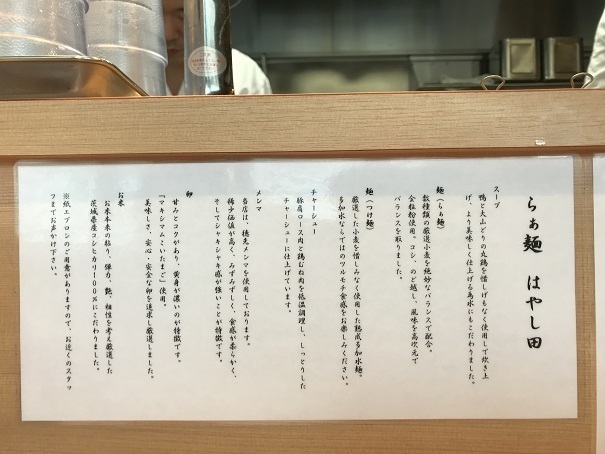 らぁ麺 はやし田
スープ
鴨と大山どりの丸鶏を惜しげもなく使用して炊き上
げ、より美味しく仕上げる為水にもこだわりました。
麺(らぁ麺)
数種類の厳選小麦を絶妙なバランスで配合。
全粒粉使用。コシ、のど越し、風味を高次元で
バランスを取りました。
麺(つけ麺)
厳選した小麦を惜しみなく使用した熟成多加水麺。
多加水ならではのツルモチ食感をお楽しみください。
チャーシュー
豚肩ロース肉と鶏むね肉を低温調理し、しっとりした
チャーシューに仕上げています。
メンマ
当店は、穂先メンマを使用しております。
稀少価値が高く、みずみずしく、食感が柔らかく、
そしてシャキシャキ感が強いことが特徴です。
卵
甘みとコクがあり、黄身が濃いのが特徴です。
「マキシマムこいたまご」使用。
美味しさ、安心・安全な卵を追求し厳選しました。
お米
お米本来の粘り、弾力、艶、相性を考え厳選した
茨城県産コシヒカリ100%にこだわりました。
※紙エプロンのご用意がありますので、お近くのスタッ
フまでお声かけ下さい。